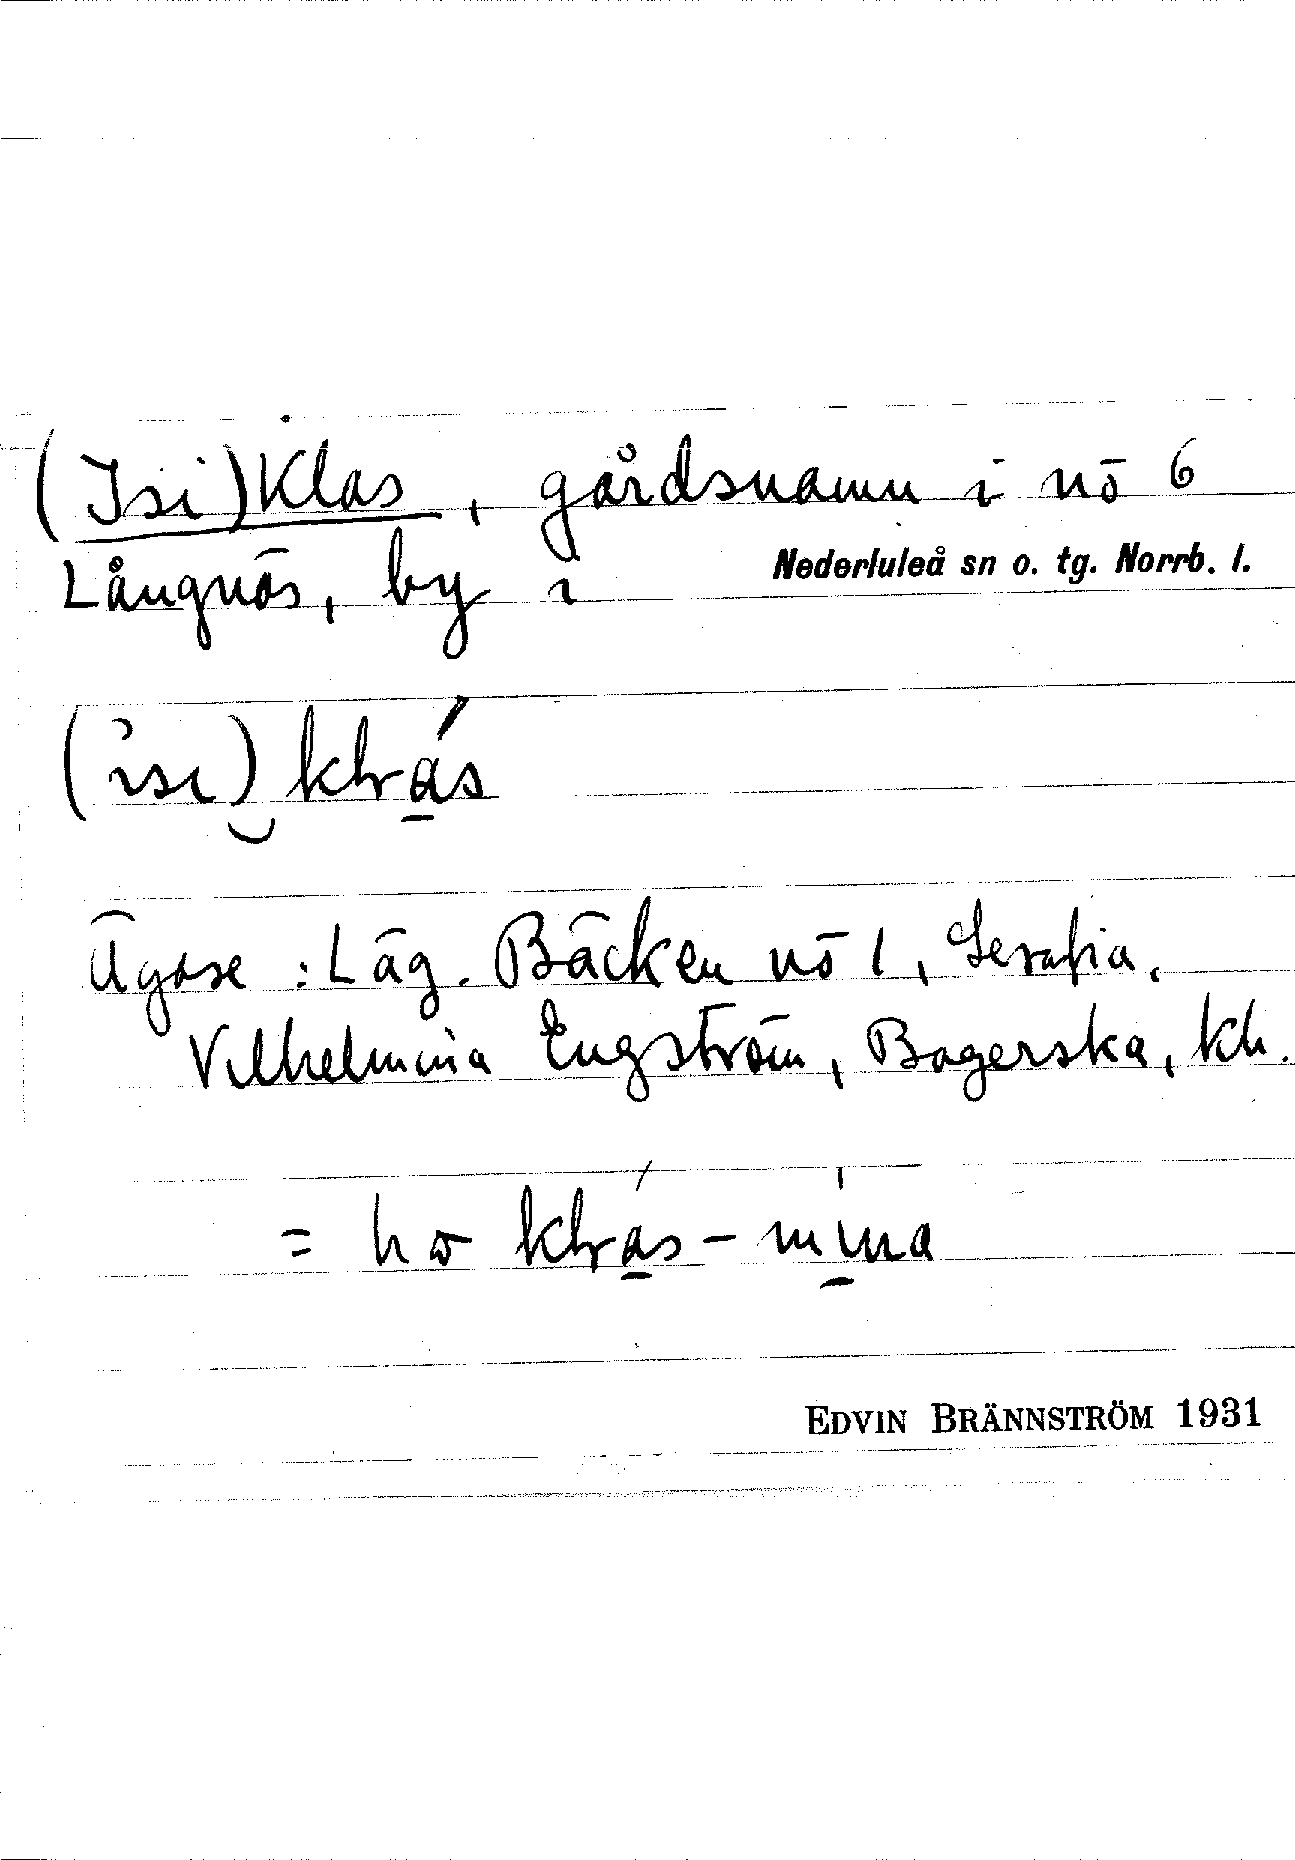 (Isi)Klas, gårdsnamn i nō 6
Långnäs, by i Nederluleå sn o. tg. Norrb. l.
(isı) klrás
Ägare : Läg. Bäcken nō 1, Serafia,
Vilhelmina Engström, Bagerska, kh.
= ho klrás-mina
EDVIN BRÄNNSTRÖM 1931